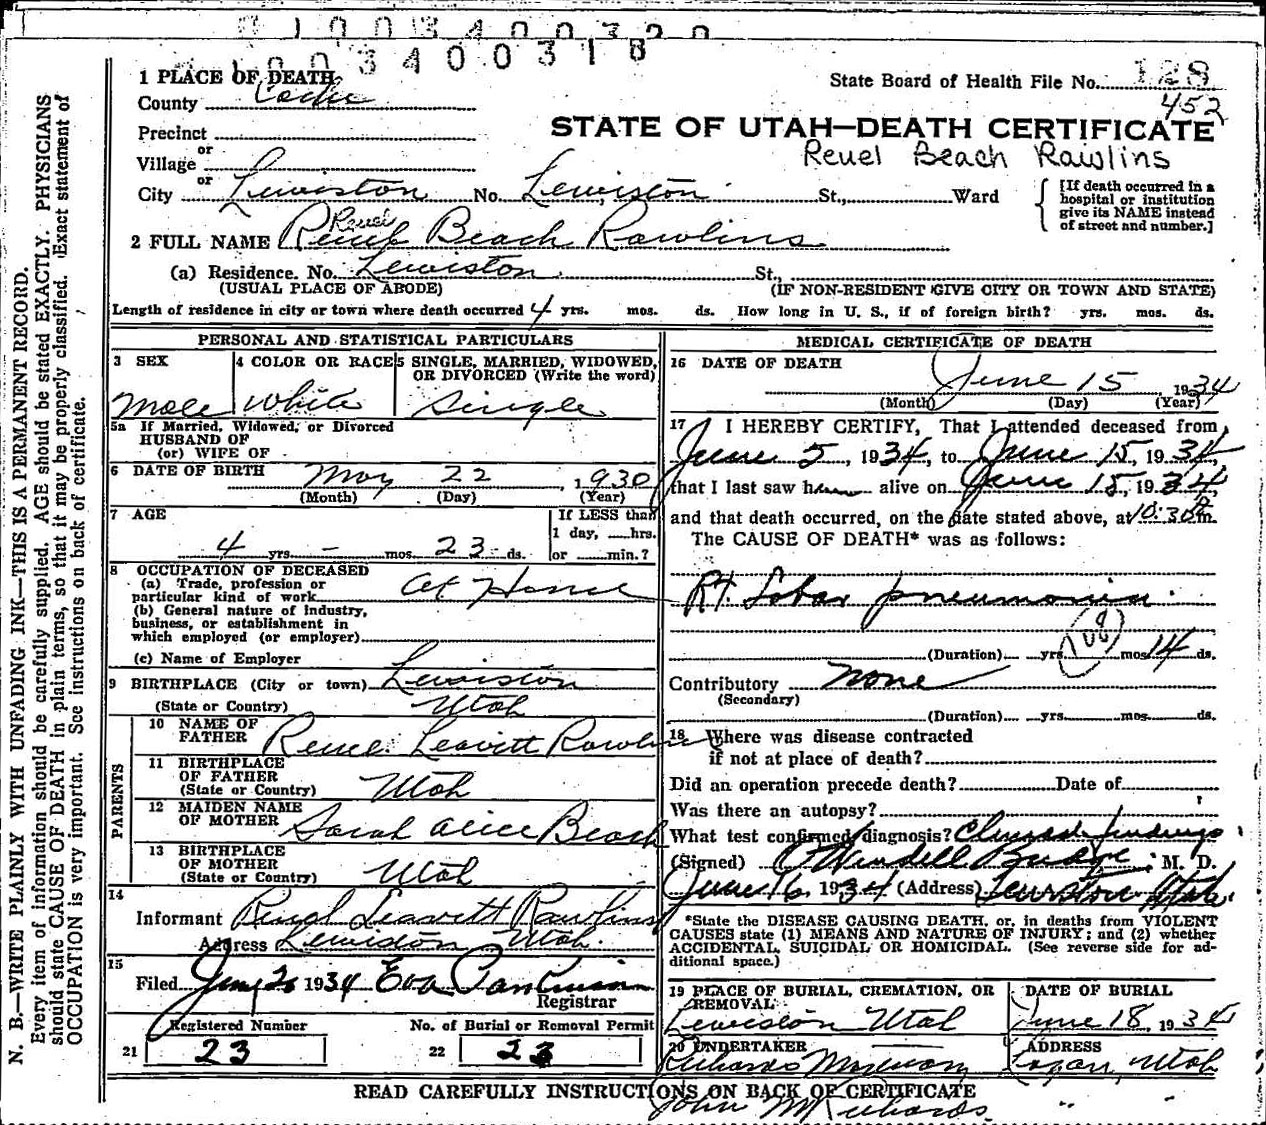 1003400318
1 PLACE OF DEATH
State Board of Health File No. 128
County Cache
452
STATE OF UTAH—DEATH CERTIFICATE
Precinct
Reuel Beach Rawlins
or
Village
or
City Lewiston No. Lewiston St., Ward
[If death occurred in a hospital or institution give its NAME instead of street and number.]
Reuel
2 FULL NAME Reuel Beach Rawlins
(a) Residence. No. Lewiston St.,
(USUAL PLACE OF ABODE) (IF NON-RESIDENT GIVE CITY OR TOWN AND STATE)
Length of residence in city or town where death occurred 4 yrs. mos. ds. How long in U. S., if of foreign birth? yrs. mos. ds.
PERSONAL AND STATISTICAL PARTICULARS
3 SEX
Male
4 COLOR OR RACE
White
5 SINGLE, MARRIED, WIDOWED, OR DIVORCED (Write the word)
Single
5a If Married, Widowed, or Divorced
HUSBAND OF
(or) WIFE OF
6 DATE OF BIRTH May 22, 1930
(Month) (Day) (Year)
7 AGE
4 yrs. - mos. 23 ds.
If LESS than
1 day, hrs.
or min.?
8 OCCUPATION OF DECEASED
(a) Trade, profession or
particular kind of work At Home
(b) General nature of industry,
business, or establishment in
which employed (or employer)
(c) Name of Employer
9 BIRTHPLACE (City or town) Lewiston
(State or Country) Utah
PARENTS
10 NAME OF
FATHER Reuel Leavitt Rawlins
11 BIRTHPLACE
OF FATHER
(State or Country) Utah
12 MAIDEN NAME
OF MOTHER Sarah Alice Beach
13 BIRTHPLACE
OF MOTHER
(State or Country) Utah
14
Informant Reuel Leavitt Rawlins
Address Lewiston Utah.
15
Filed 1934 Eva
Registrar
Registered Number
21 23
No. of Burial or Removal Permit
22 23
MEDICAL CERTIFICATE OF DEATH
16 DATE OF DEATH
June 15, 1934
(Month) (Day) (Year)
17 I HEREBY CERTIFY, That I attended deceased from
June 5, 1934, to June 15, 1934,
that I last saw him alive on June 15, 1934,
and that death occurred, on the date stated above, at 10:30 m.
The CAUSE OF DEATH* was as follows:
Rt. Lobar pneumonia.
108
(Duration) yrs. mos. 14 ds.
Contributory None
(Secondary)
(Duration) yrs. mos. ds.
18 Where was disease contracted
if not at place of death?
Did an operation precede death? Date of
Was there an autopsy?
What test confirmed diagnosis? Clinical findings.
(Signed) O Wendell Budge M. D.
June 16, 1934 (Address) Lewiston Utah.
*State the DISEASE CAUSING DEATH, or, in deaths from VIOLENT
CAUSES state (1) MEANS AND NATURE OF INJURY; and (2) whether
ACCIDENTAL, SUICIDAL OR HOMICIDAL. (See reverse side for ad-
ditional space.)
19 PLACE OF BURIAL, CREMATION, OR
REMOVAL
Lewiston Utah
DATE OF BURIAL
June 18, 1934
20 UNDERTAKER
Richards
ADDRESS
Logan, Utah
READ CAREFULLY INSTRUCTIONS ON BACK OF CERTIFICATE
John M Richards
N. B.—WRITE PLAINLY WITH UNFADING INK—THIS IS A PERMANENT RECORD.
Every item of information should be carefully supplied. AGE should be stated EXACTLY. PHYSICIANS
should state CAUSE OF DEATH in plain terms, so that it may be properly classified. Exact statement of
OCCUPATION is very important. See instructions on back of certificate.